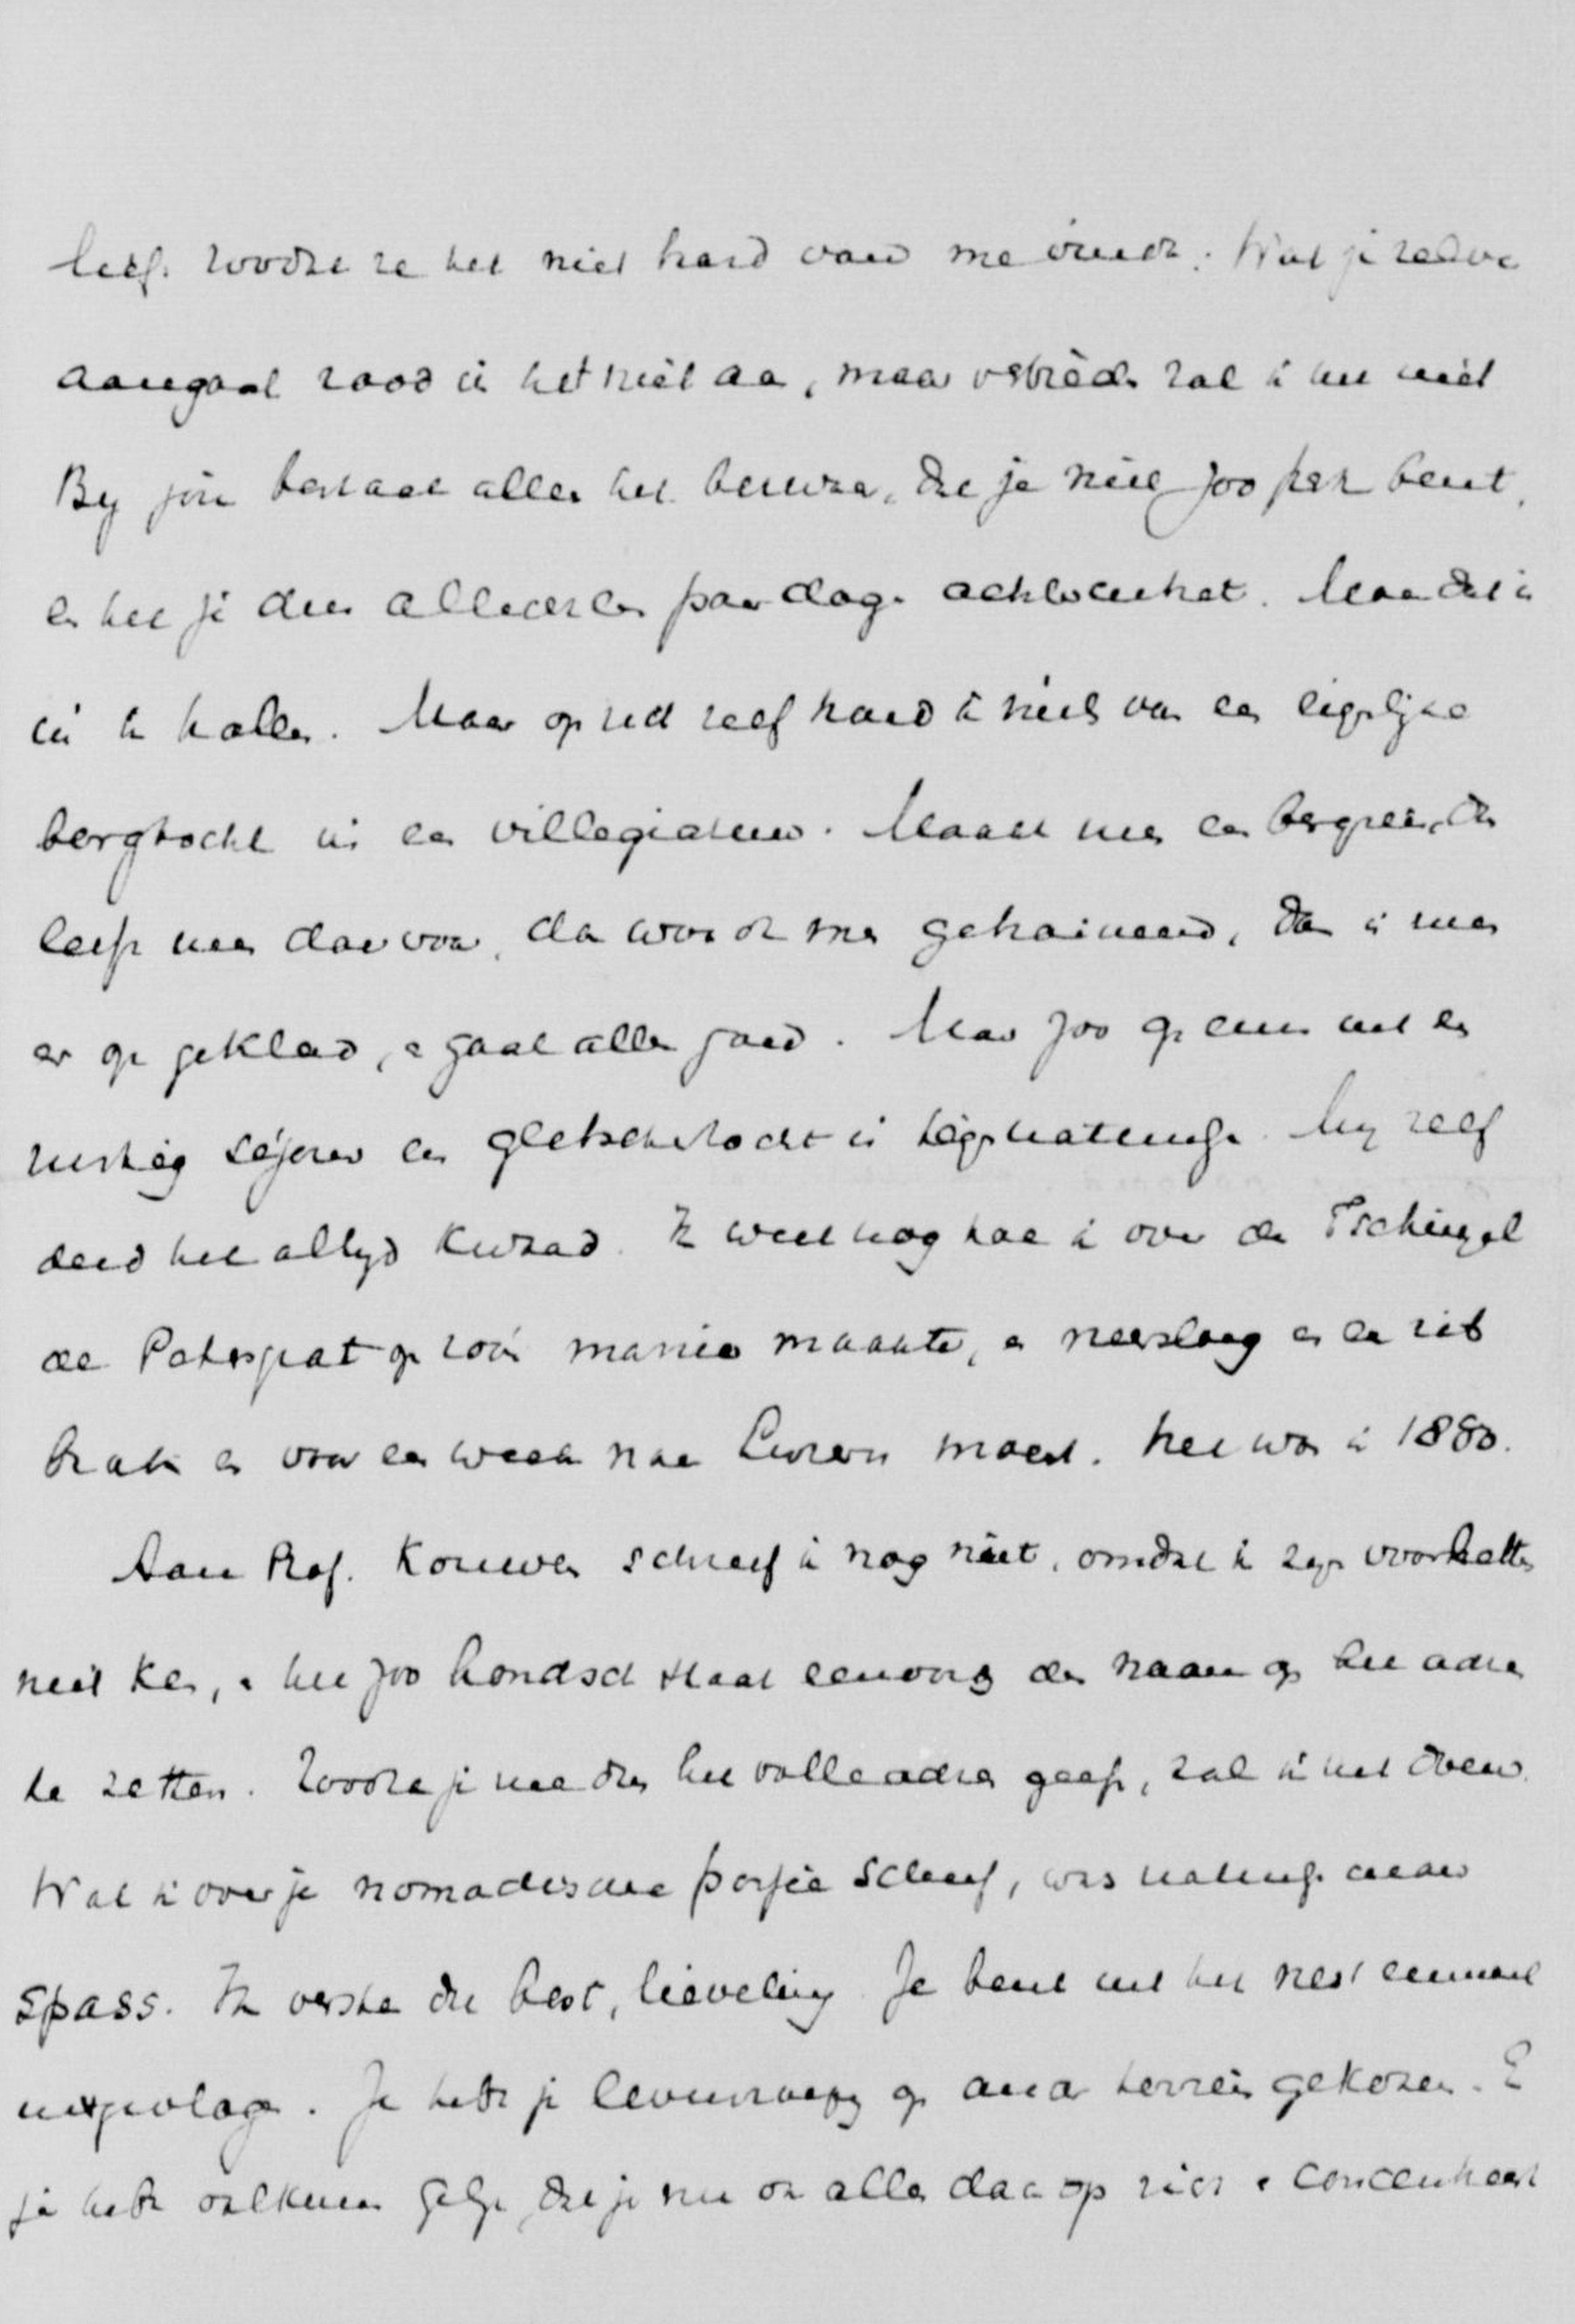 leef. zoodat ze het niet hard van me vindt. Wat je zelve
aangaat raad ik het niet aan, maar verbieden zal ik het niet
By jou bestaat alleen het bezwaar, dat je niet zoo sterk bent,
en het je dus allicht een paar dagen achteruitzet. Maar dat is
uit te houden. Maar op zich zelf houd ik niets van een eigenlijke
bergtocht in een villegiatuur. Maakt men een bergreis, dan
leeft men daarvoor, dan wordt men getraineerd, dan is men
er op gekleed, en gaat alles goed. Maar zoo op eens uit een
rustig séjour een gletschertocht is tegennatuurlijk. My zelf
deed het altyd kwaad. Ik weet nog hoe ik over de Tschingel
de Petersgrat op zoo'n manier maakte, en neersloeg en een rib
brak en voor een week naar Luzern moest. Het was in 1880.
Aan Prof. Kouwer schreef ik nog niet, omdat ik zijn voorletters
niet ken, en het zoo hondsch staat eenvoudig den naam op het adres
te zetten. Zoodra je me dus het volle adres geeft, zal ik het doen.
Wat ik over je nomadische positie schreef, was natuurlijk maar
spass. Ik versta dit best, lieveling. Je bent uit het nest eenmaal
uitgevlogen. Je hebt je levensroeping op ander terrein gekozen. En
je hebt volkomen gelijk, dat je nu ook alles daarop richt en concentreert